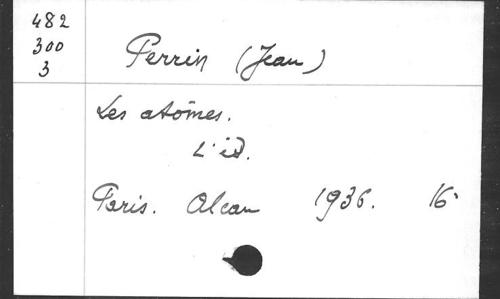 482
300
3
Perrin (Jean)
Les atômes.
L'id.
Paris. Alcan 1936. 16°